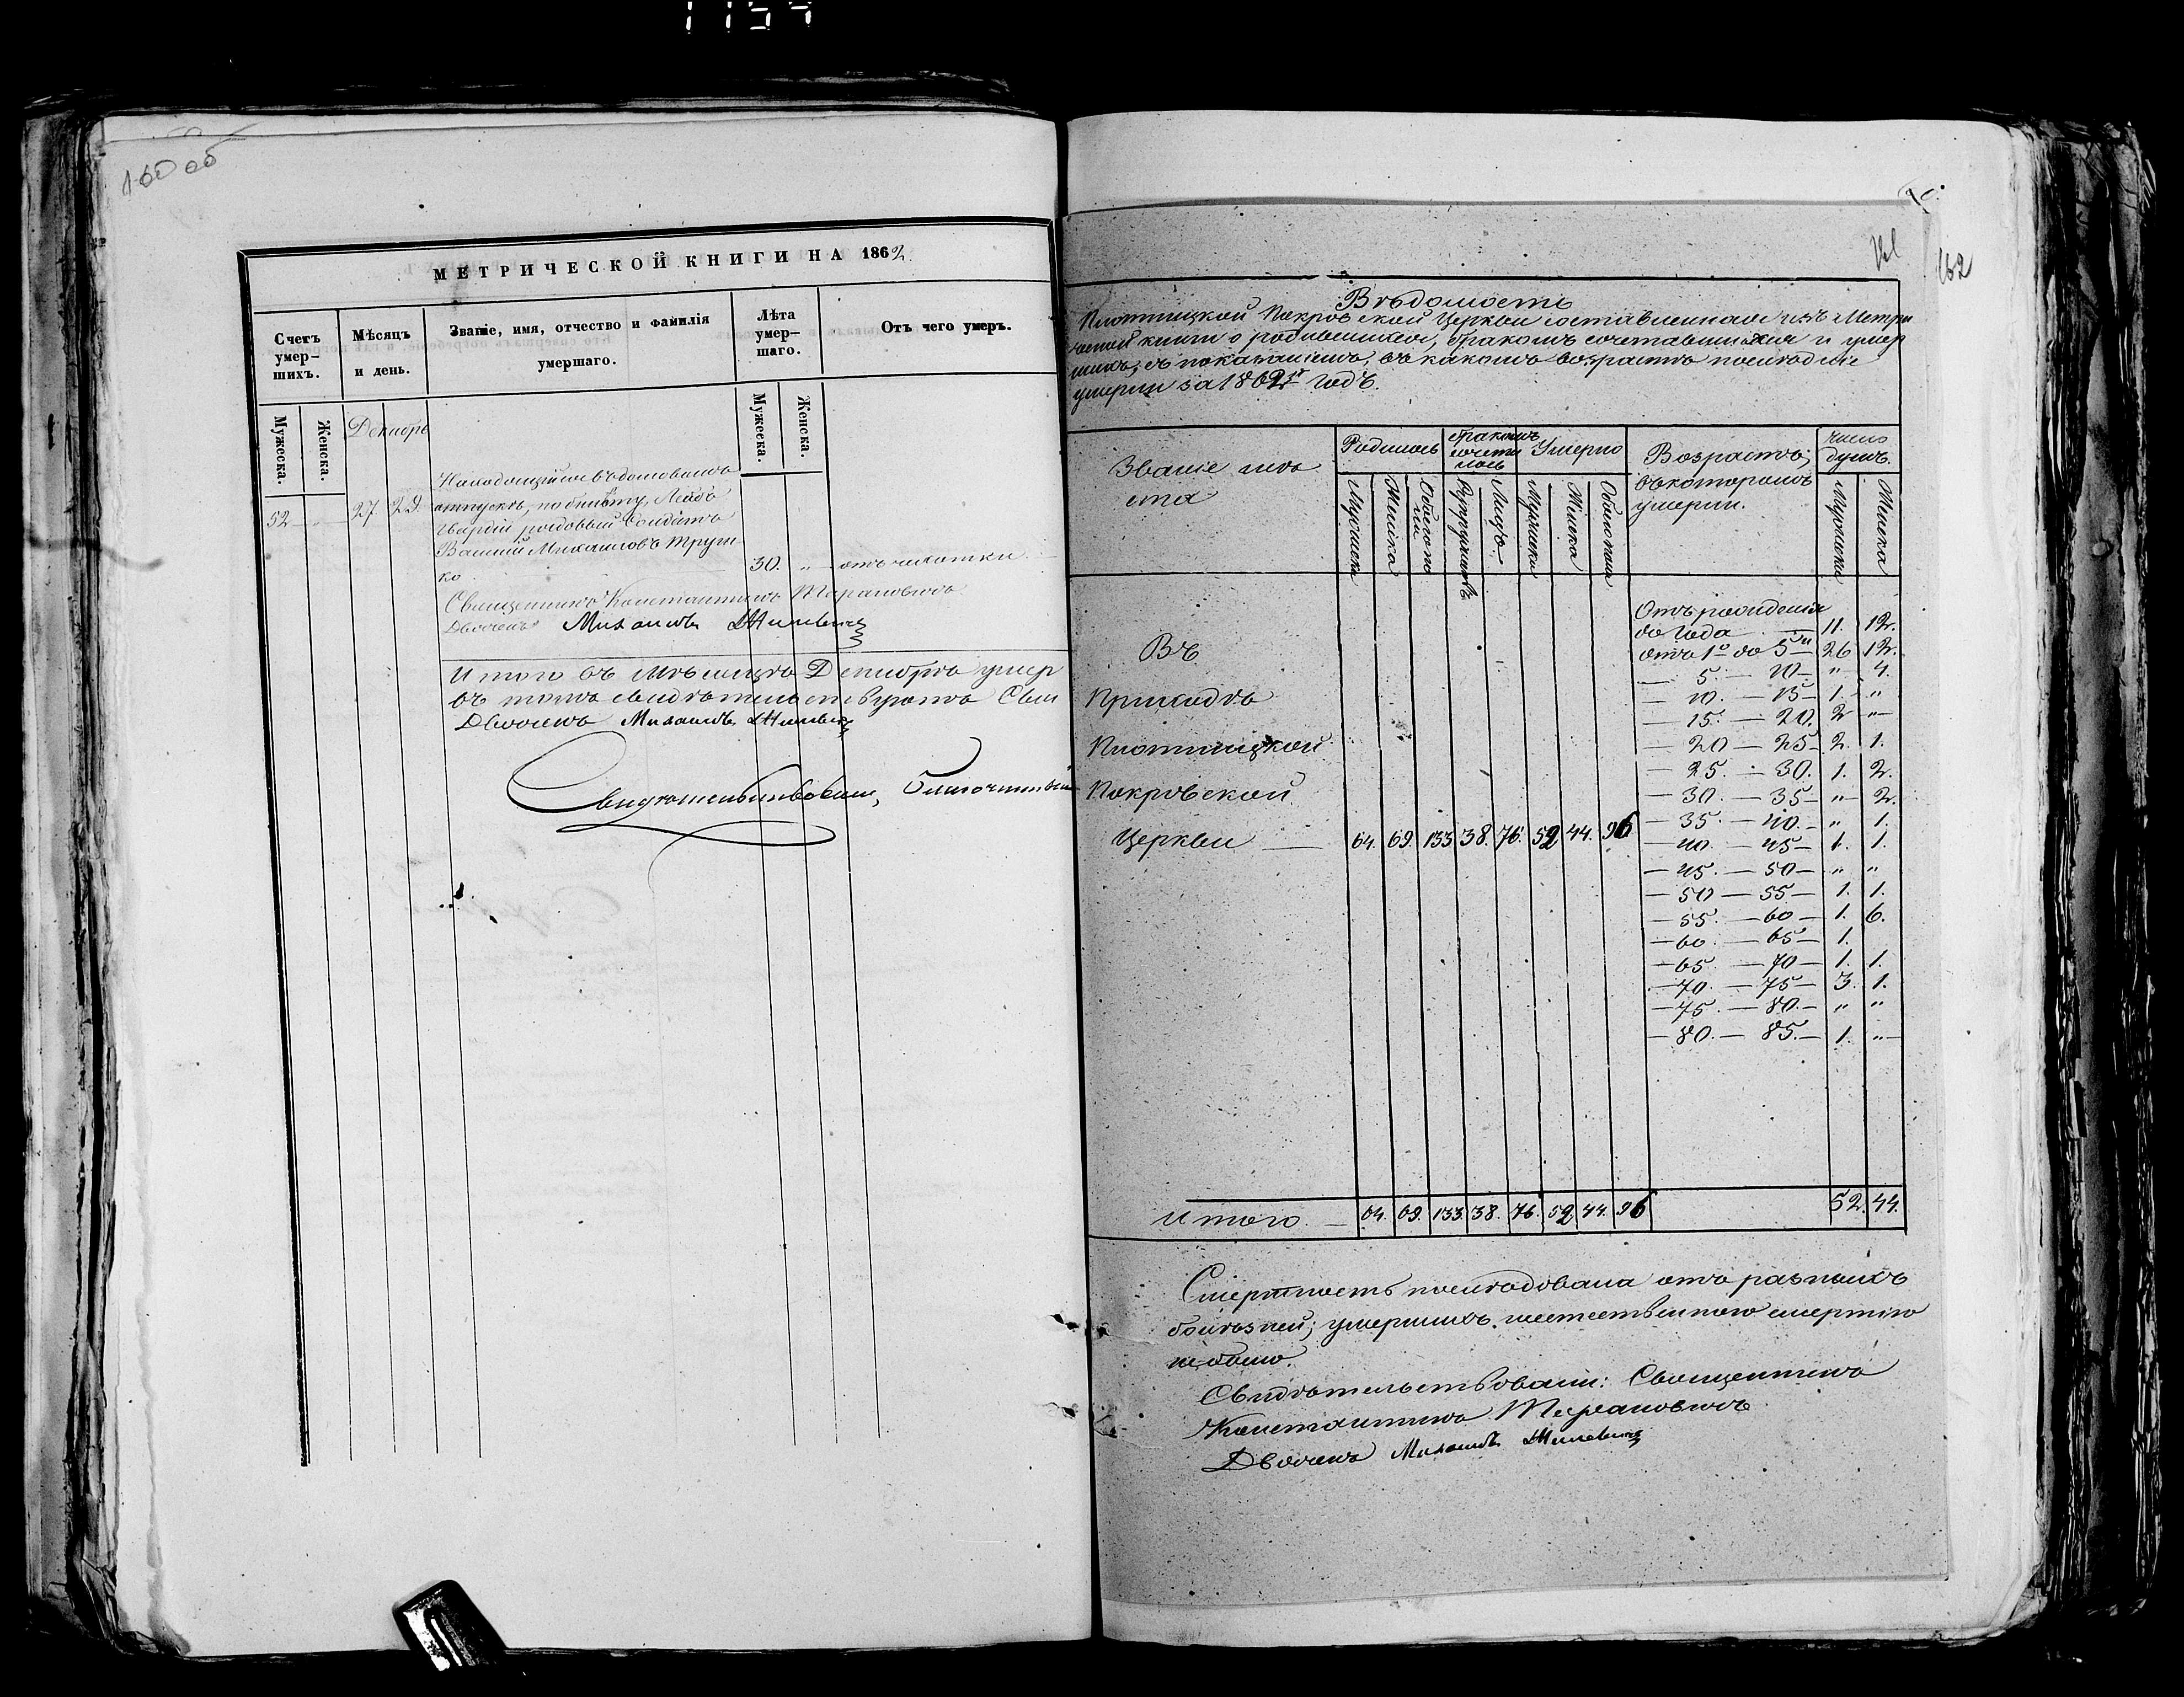 1154
160 об
МЕТРИЧЕСКОЙ КНИГИ НА 1862
Счетъ умер-
шихъ.
Мѣсяцъ
и день.
Званіе, имя, отчество и фамилія
умершаго.
Лѣта
умер-
шаго.
Отъ чего умеръ.
Мужеска.
Женска.
Декабрь
Мужеска.
Женска.
Находящійся въ домовомъ
52 „ 27 29 отпускѣ, по билету, Лейбъ
Гвардіи рядовый Солдатъ
Михаиловъ
ко 30. „ отъ чахотки
Священникъ Константинъ Тарановичъ
Дьячекъ Михаилъ
Итого въ Мѣсяцѣ Декабрѣ умер
въ томъ свидѣтельствуютъ Свящ
Дьячекъ Михаилъ
Свидѣтельствовалъ, Благочинный
161
162
Вѣдомость
Плотницкой Покровской Церкви составленная изъ Метри
ческой книги о родившихся, бракомъ сочетавшихся и умер
шихъ, съ показаніемъ, въ какомъ возрастѣ послѣдніе
умерли за 1862й годъ.
Званіе мѣ
ста
Родилось
бракомъ
сочета
лось
Умерло
Возрастъ,
въ которомъ
умерли.
Число
душъ.
Мужеска
Женска
Обоего по
ла
Супружествъ
Лицъ.
Мужеска
Женска
Обоего пола
Мужеска
Женска
Отъ рожденія
до года — 11. 12.
отъ 1го до 5ти 26 12.
— 5. — 10 — „ 4.
— 10. — 15 — 1. „
— 15. — 20. 2 „
— 20 — 25 — 2. 1.
— 25. — 30. 1. 2.
— 30. — 35 — „ 2.
— 35. — 40. — „ 1.
— 40. — 45 — 1. 1.
— 45. — 50 — „ „
— 50 — 55 — 1. 1.
— 55. — 60 — 1. 6.
— 60. — 65 — 1.
— 65. — 70 — 1. 1.
— 70. — 75 — 3. 1.
— 75. — 80. — „ „
— 80. — 85. — 1. „
Въ
Приходѣ
Плотницкой
Покровской
Церкви — 64. 69. 133 38. 76. 52 44. 96
Итого. — 64. 69. 133. 38. 76. 52 44. 96 52. 44.
Смертность послѣдовала отъ разныхъ
болѣзней; умершихъ неестественною смертію
не было.
Свидѣтельствовали: Священникъ
Константинъ Тарановичъ
Дьячекъ Михаилъ